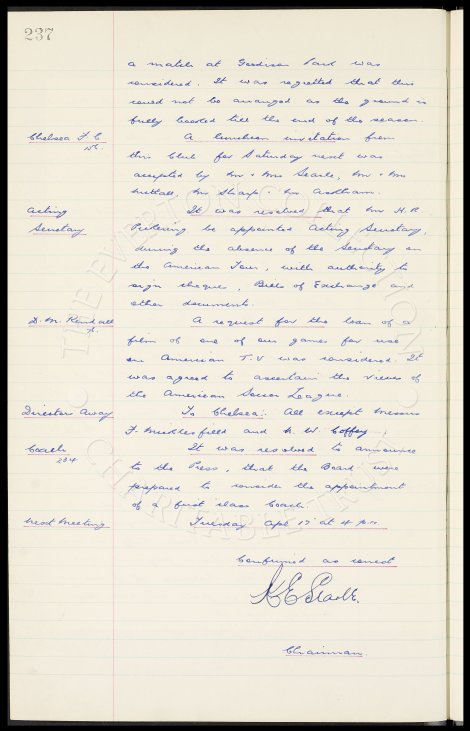 237
a match at Goodison Park was
considered. It was regretted that this
could not be arranged as the ground is
fully booked till the end of the season.
Chelsea F.C. A luncheon invitation from
this Club for Saturday next was
accepted by Mr & Mrs Searle, Mr & Mrs
Nuttall, Mr Sharp & Mr
Acting It was resolved that Mr H. R.
Secretary Pickering be appointed Acting Secretary,
during the absence of the Secretary on
the American Tour, with authority to
sign cheques, Bills of Exchange and
other documents.
D. M. Kendall A request for the loan of a
film of one of our games for use
on American T.V was considered. It
was agreed to ascertain the views of
the American Soccer League.
Director Away To Chelsea: All except Messrs
F. Micklesfield and N. W. Coffey.
Coach It was resolved to announce
234 to the Press, that the Board were
prepared to consider the appointment
of a first class Coach.
Next Meeting Tuesday Apl 17 at 4 p.m.
Confirmed as correct
Chairman.
THE EVERTON COLLECTION
CHARITABLE TRUST